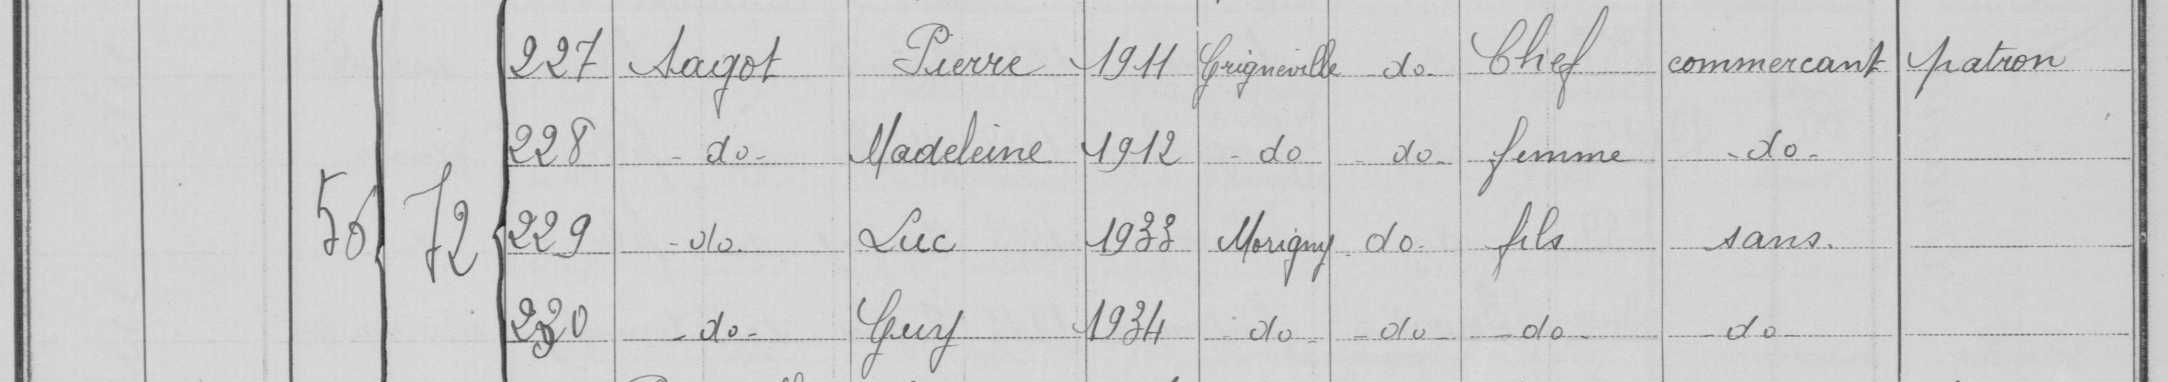 227 Sagot Pierre 1911 Grigneville do Chef commercant patron
228 - do - Madeleine 1912 - do - do - femme - do -
56 72 229 - do. Luc 1933 Morigny do. fils sans.
230 - do - Guy 1934 - do - - do - - do - - do -